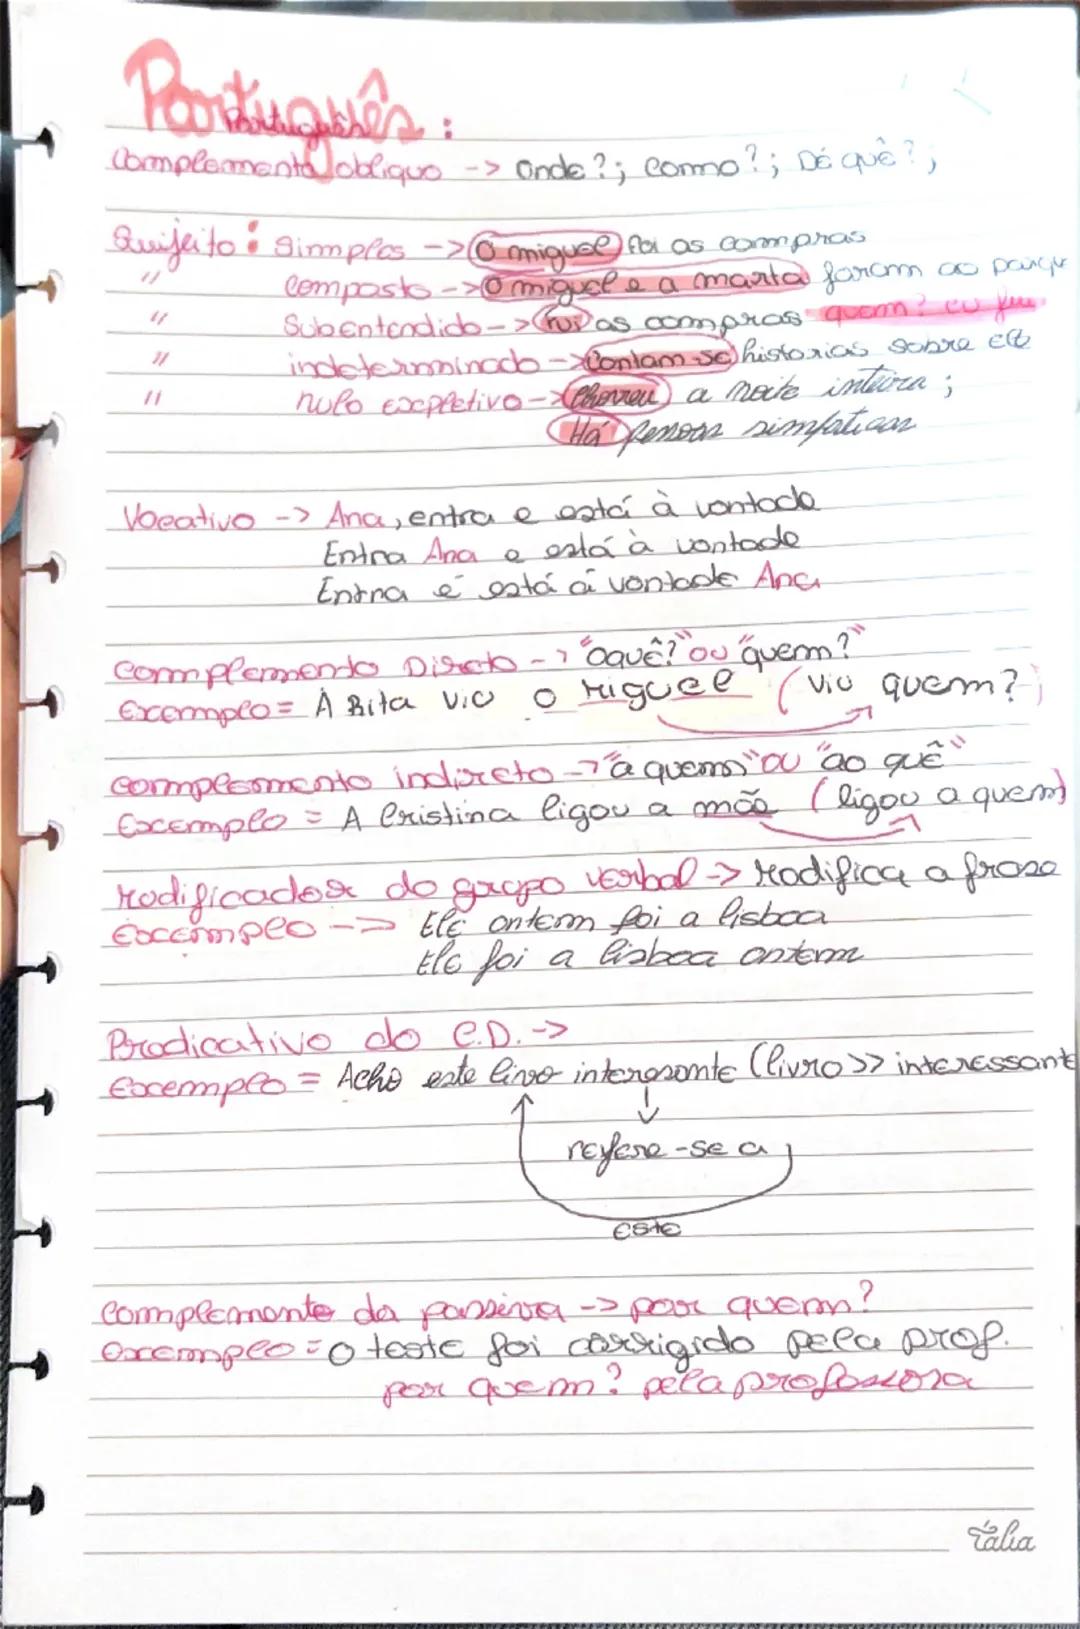 Português
Português :
Complemento obliquo -> Onde?; Como?; Dé quê?;
Sujeito : Simples -> O miguel foi as compras
" composto -> O miguel e a marta foram ao parque
" Subentendido -> Fui as compras quem? eu fui
" indeterminado -> Contam-se historias sobre ele
" nulo expletivo -> Choveu a noite inteira ;
Há pessoas simpaticas
Vocativo -> Ana, entra e está à vontade
Entra Ana e está à vontade
Entra e está á vontade Ana
Complemento Direto -> "oquê?" ou "quem?"
Exemplo = A Rita viu o Miguel (viu quem?)
complemento indireto -> "a quem" ou "ao quê"
Exemplo = A Cristina ligou a mãe (ligou a quem)
Modificador do grupo verbal -> Modifica a frase
Exemplo --> Ele ontem foi a lisboa
Ele foi a lisboa ontem
Predicativo do C.D. ->
Exemplo = Acho este livo interesante (livro >> interessante
refere-se a
este
Complemento da passiva -> por quem?
Exemplo = O teste foi corrigido pela prof.
por quem? pela professora
Tália